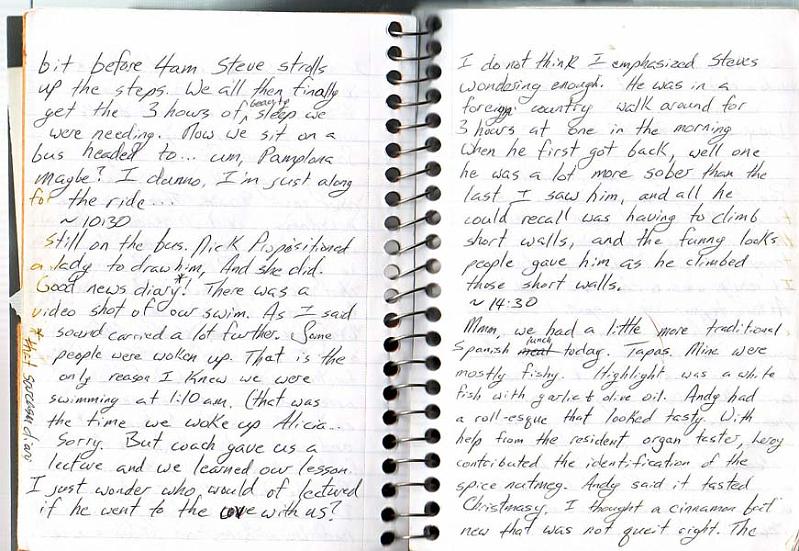 bit before 4am Steve strolls
up the steps. We all then finally
get the 3 hours of ^beauty sleep we
were needing. Now we sit on a
bus headed to... um, Pamplona
maybe? I dunno, I'm just along
for the ride...
~ 10:30
Still on the bus. Nick Propositioned
a lady to draw him, And she did.
Good news diary*! There was a
video shot of our swim. As I said
* sound carried a lot further. Some
people were woken up. That is the
only reason I knew we were
swimming at 1:10 am. (that was
the time we woke up Alicia..
Sorry. But coach gave us a
lecture and we learned our lesson.
I just wonder who would of lectured
if he went to the cove with us?
I do not think I emphasized Steves
wondering enough. He was in a
foreign country walk around for
3 hours at one in the morning
When he first got back, well one
he was a lot more sober than the
last I saw him, and all he
could recall was having to climb
short walls, and the funny looks
people gave him as he climbed
those short walls.
~ 14:30
Mmm, we had a little more traditional
Spanish meal lunch today. Tapas. Mine were
mostly fishy. Highlight was a white
fish with garlic & olive oil. Andy had
a roll-esque that looked tasty. With
help from the resident organ taster, Leroy
contributed the identification of the
spice nutmeg. Andy said it tasted
Christmasy. I thought a cinnamon but
new that was not queit right. The